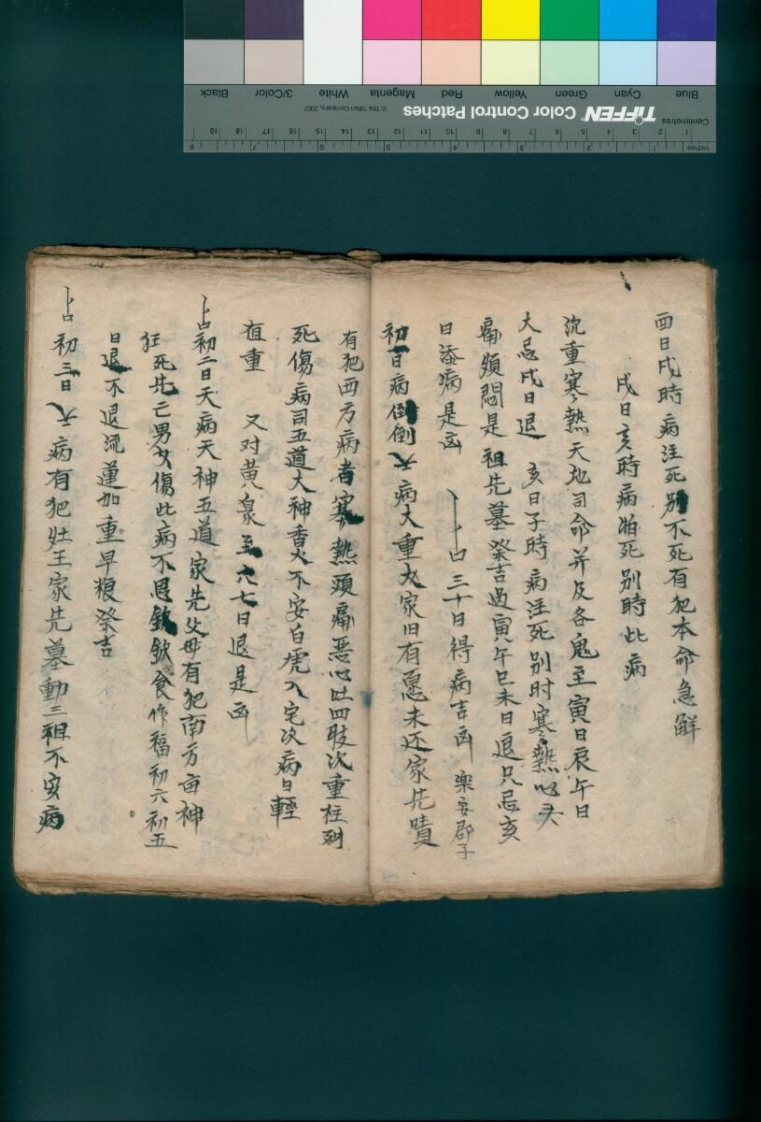 Blue
Cyan
Green
Yellow
Red
Magenta
White
3/Color
Black
TIFFEN Color Control Patches
© The Tiffen Company, 2007
Centimetres
Inches
酉日戌時病注死別不死有犯本命急觧
戌日亥時病怕死别時此病
沉重寒熱天地司命并及各鬼至寅日辰午日
大忌戌日退 亥日子時病注死别时寒熱心头
痛煩悶是祖先墓祭吉過寅午巳未日退只忌亥
日添病是凶 卜占三十日得病吉凶 樂安郡子
初一日病倒 人病大重犬家旧有愿未还家先墳
有犯西方病者寒熱頭痛恶心吐四肢次重
死傷病司五道大神香火不安白虎入宅次病日輕
直重 又对黄泉至六七日退是凶
卜占初二日天病天神五道家先父母有犯南方亩神
狂死先亡男女傷此病不思飲食作福初六初五
日退不退流蓮加重早粮祭吉
卜占初三日 人病有犯灶王家先墓動三祖不安病